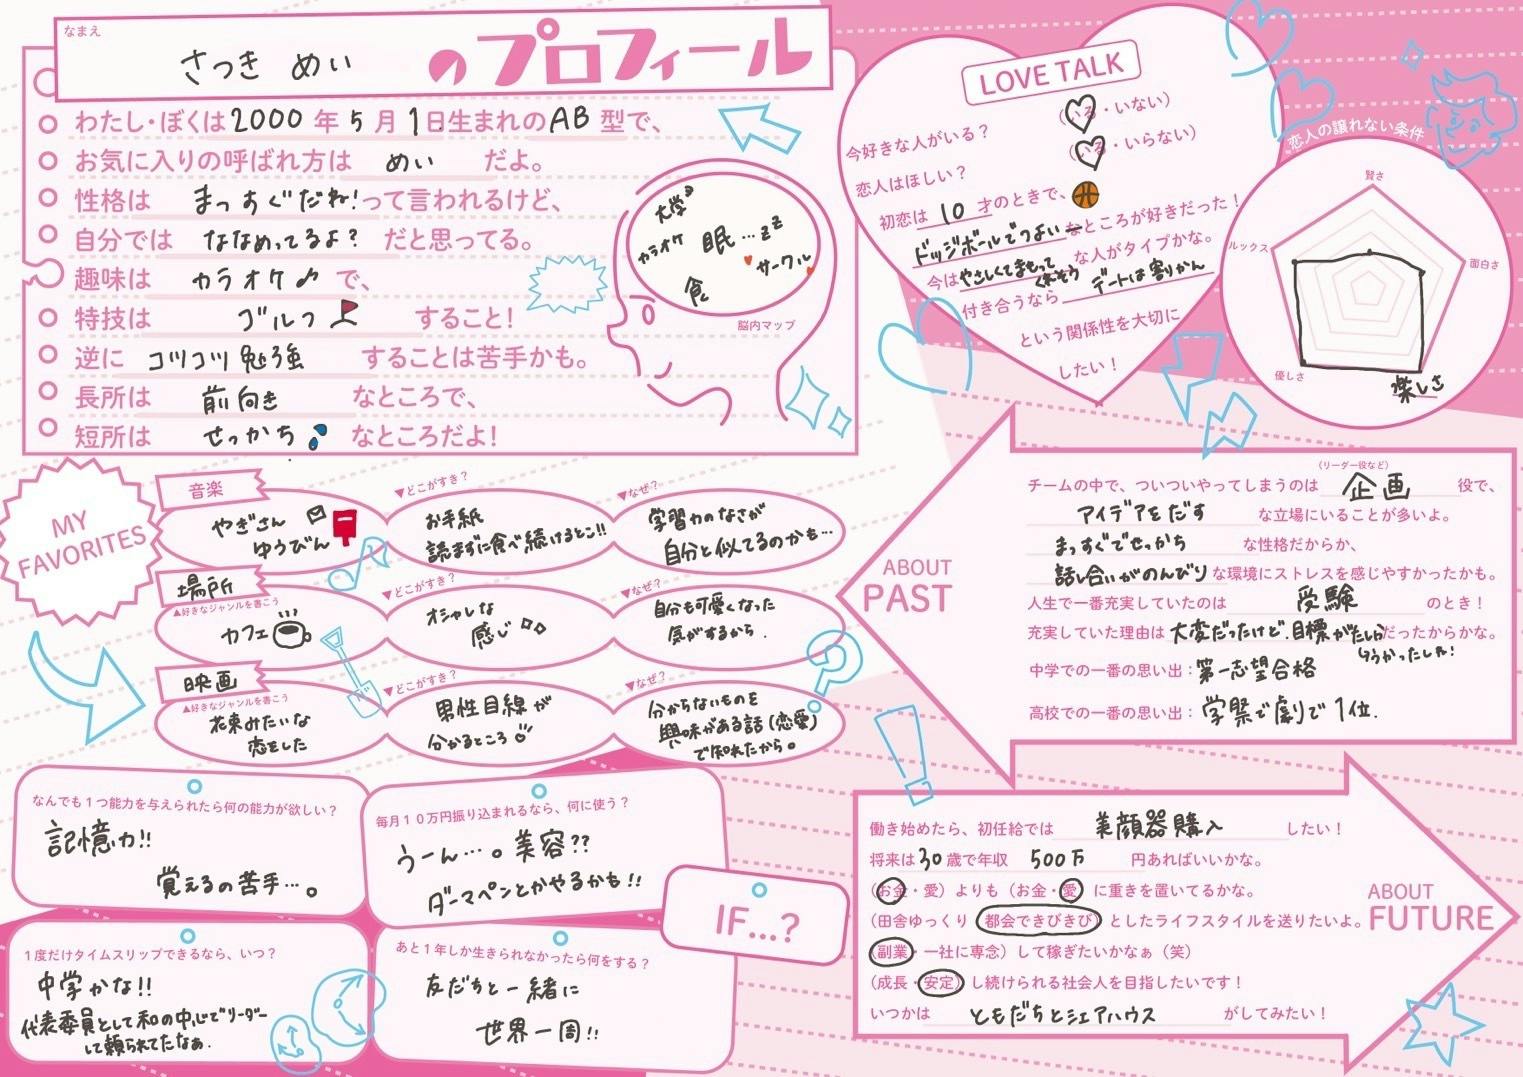 なまえ
さつき めい のプロフィール
わたし・ぼくは2000年5月1日生まれのAB型で、
お気に入りの呼ばれ方は めい だよ。
性格は まっすぐだね!って言われるけど、
自分では ななめってるよ? だと思ってる。
趣味は カラオケ♪ で、
特技は ゴルフ すること!
逆に コツコツ勉強 することは苦手かも。
長所は 前向き なところで、
短所は せっかち なところだよ!
大学
カラオケ
眠…zz
サークル
食
脳内マップ
LOVE TALK
今好きな人がいる? (いる・いない)
恋人はほしい? (いる・いらない)
初恋は 10 才のときで、
ドッジボールでつよい なところが好きだった!
今はやさしくてまもってくれそう な人がタイプかな。
付き合うなら デートは割りかん
という関係性を大切に
したい!
恋人の譲れない条件
賢さ
ルックス
面白さ
優しさ
楽しさ
MY
FAVORITES
音楽
やぎさん
ゆうびん
▼どこがすき?
お手紙
読まずに食べ続けるとこ!!
▼なぜ?
学習力のなさが
自分と似てるのかも…
場所
▲好きなジャンルを書こう
カフェ
▼どこがすき?
オシャレな
感じ
▼なぜ?
自分も可愛くなった
気がするから.
映画
▲好きなジャンルを書こう
花束みたいな
恋をした
▼どこがすき?
男性目線が
分かるところ
▼なぜ?
分からないものを
興味がある話(恋愛)
で知れたから。
ABOUT
PAST
(リーダー役など)
チームの中で、ついついやってしまうのは 企画 役で、
アイデアをだす な立場にいることが多いよ。
まっすぐでせっかち な性格だからか、
話し合いがのんびり な環境にストレスを感じやすかったかも。
人生で一番充実していたのは 受験 のとき!
充実していた理由は 大変だったけど.目標が だったからかな。
中学での一番の思い出:第一志望合格
高校での一番の思い出:学祭で劇で1位.
なんでも1つ能力を与えられたら何の能力が欲しい?
記憶力!!
覚えるの苦手…。
毎月10万円振り込まれるなら、何に使う?
うーん…。美容??
ダーマペンとかやるかも!!
IF...?
1度だけタイムスリップできるなら、いつ?
中学かな!!
代表委員として和の中心でリーダー
して頼られてたなぁ.
あと1年しか生きられなかったら何をする?
友だちと一緒に
世界一周!!
働き始めたら、初任給では 美顔器購入 したい!
将来は30歳で年収 500万 円あればいいかな。
(お金・愛)よりも(お金・愛)に重きを置いてるかな。
(田舎ゆっくり 都会できびきび)としたライフスタイルを送りたいよ。
(副業・一社に専念)して稼ぎたいかなぁ(笑)
(成長・安定)し続けられる社会人を目指したいです!
いつかは ともだちとシェアハウス がしてみたい!
ABOUT
FUTURE